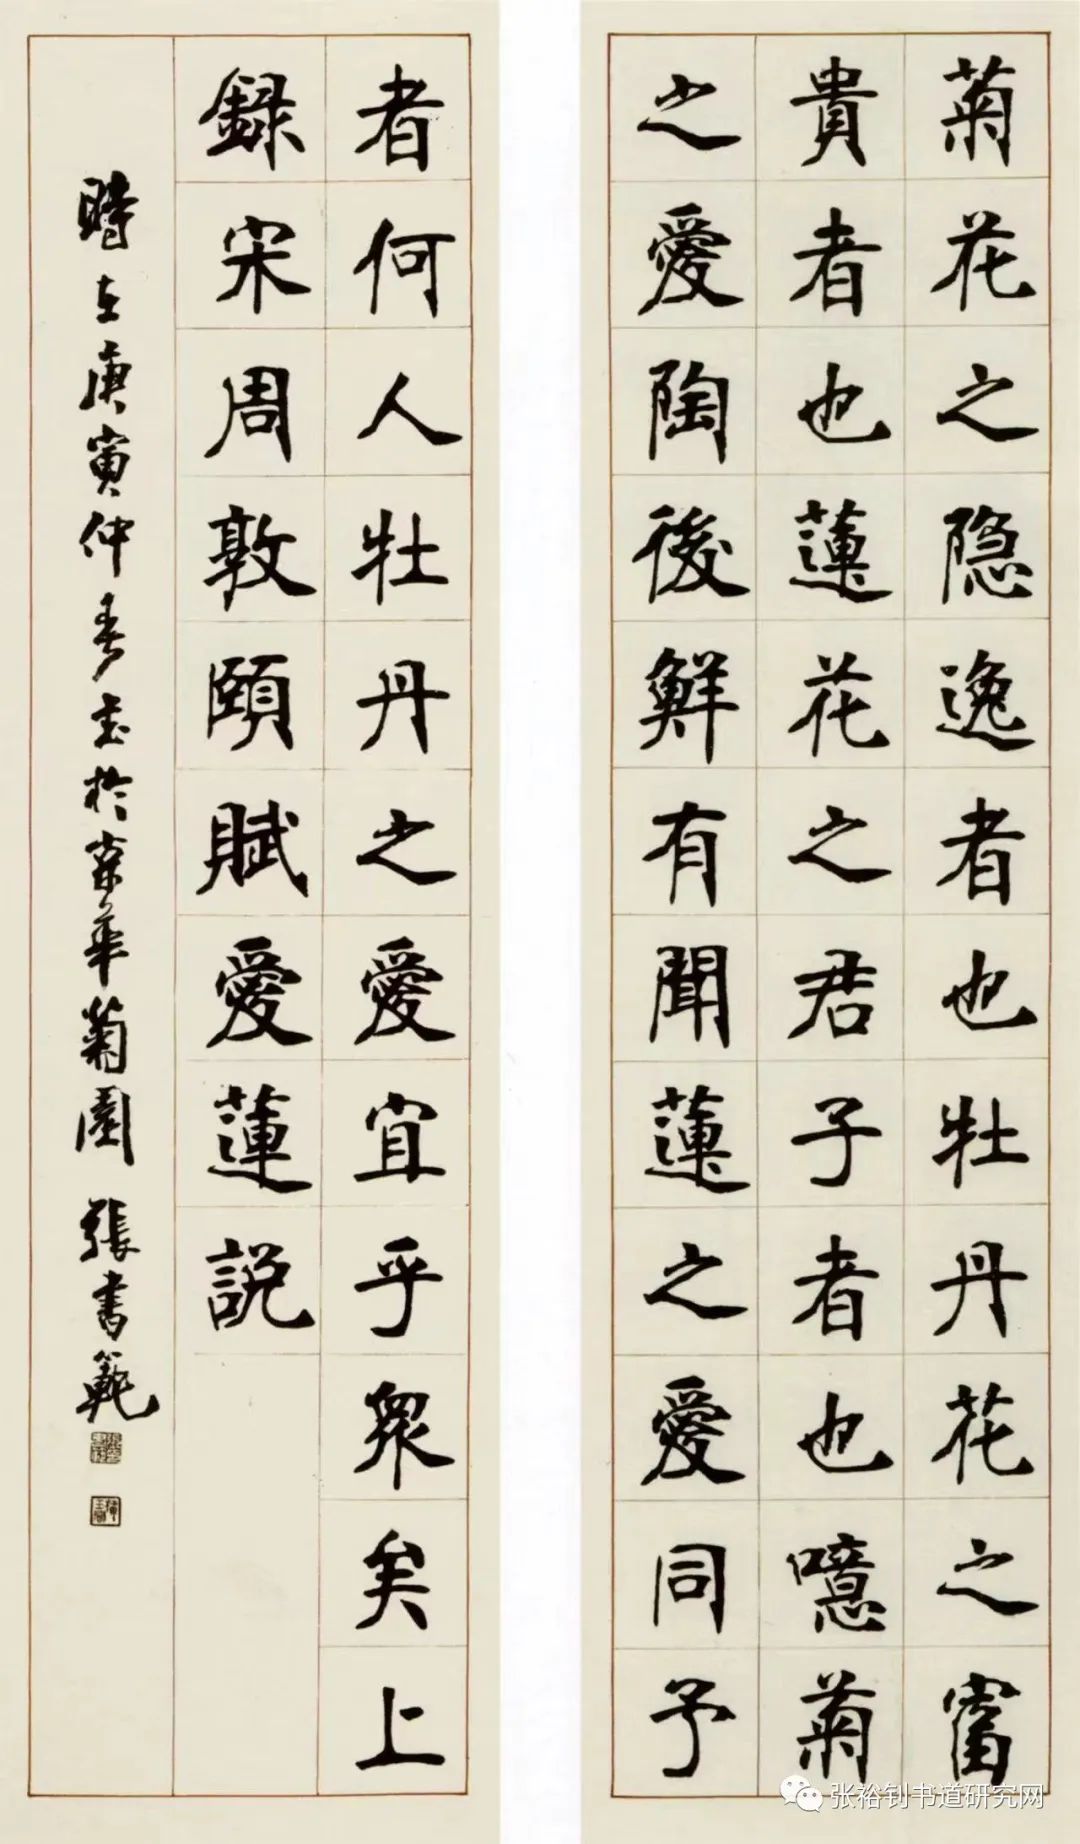 菊花之隐逸者也牡丹花之富
貴者也蓮花之君子者也噫菊
之愛陶後鮮有聞蓮之愛同予
者何人牡丹之愛宜乎眾矣上
録宋周敦頤賦愛蓮説
時在庚寅仲春書於京華菊園 張書範
张裕钊书道研究网